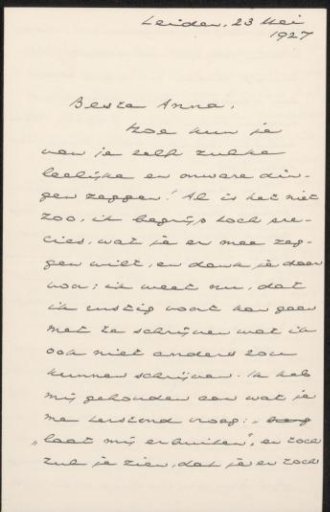 Leiden, 23 Mei
1927
Beste Anna,
Hoe kun je
van je zelf zulke
leelijke en onware din-
gen zeggen! Al is het niet
zoo, ik begrijp toch pre-
cies, wat je er mee zeg-
gen wilt, en dank je daar
voor: ik weet nu, dat
ik rustig voort kan gaan
met te schrijven wat ik
ook niet anders zou
kunnen schrijven. Ik heb
mij gehouden aan wat je
me terstond vroeg:
„laat mij erbuiten", en toch
zul je zien, dat je er toch